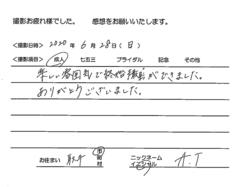 撮影お疲れ様でした。 感想をお願いいたします。
<撮影日時> 2020年 6月 28日(日)
<撮影項目> 成人 七五三 ブライダル 記念 その他
楽しい雰囲気で終始撮影ができました。
ありがとうございました。
お住まい 市 ニックネーム イニシャル A.T